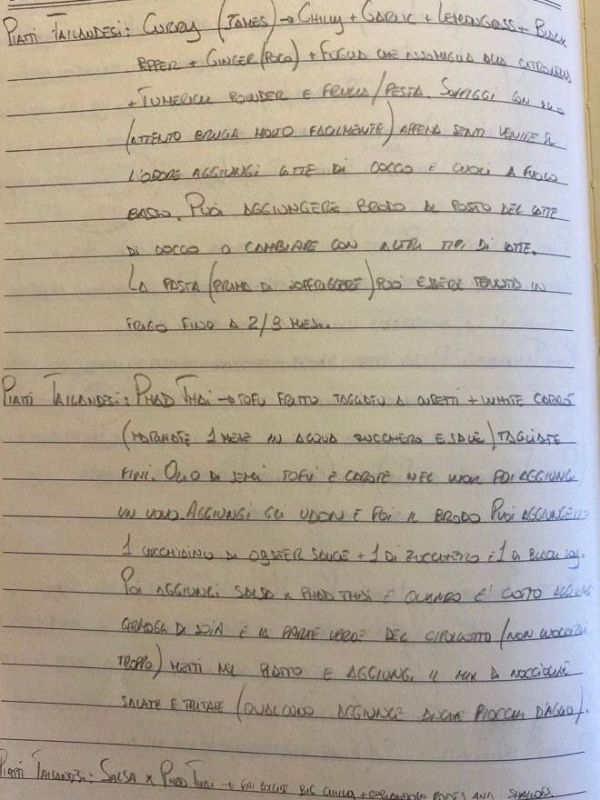 PIATTI TAILANDESI: CURRY (JAMES) → CHILLY + GARLIC + LEMONGRASS + BLACK
PEPPER + GINGER (POCO) + FOGLIA CHE ASSOMIGLIA ALLA CITRONELLA
+ TUMERICH POWDER E FRULLA/PESTA. SOFFRIGGI CON OLIO
(ATTENTO BRUCIA MOLTO FACILMENTE) APPENA SENTI VENIRE SU
L'ODORE AGGIUNGI LATTE DI COCCO E CUOCI A FUOCO
BASSO. PUOI AGGIUNGERE BRODO AL POSTO DEL LATTE
DI COCCO O CAMBIARE CON ALTRI TIPI DI LATTE.
LA PASTA (PRIMA DI SOFFRIGGERE) PUÒ ESSERE TENUTA IN
FRIGO FINO A 2/3 MESI.
PIATTI TAILANDESI: PHAD THAI → TOFU FRITTO TAGLIATO A CUBETTI + WHITE CAROTE
(MARINATE 1 MESE IN ACQUA ZUCCHERO E SALE) TAGLIATE
FINI. OLIO DI SEMI TOFU E CAROTE NEL WOK POI AGGIUNGI
UN UOVO. AGGIUNGI GLI UDON E POI IL BRODO PUOI AGGIUNGERE
1 CUCCHIAINO DI OYSTER SAUCE + 1 DI ZUCCHERO E 1 DI
POI AGGIUNGI SALSA X PHAD THAI E QUANDO È COTTO AGGIUNGI
GERMOGLI DI SOIA E LA PARTE VERDE DEL CIPOLLOTTO (NON CUOCERE
TROPPO) METTI NEL PIATTO E AGGIUNGI IL MIX DI NOCCIOLINE
SALATE E TRITATE (QUALCUNO AGGIUNGE ANCHE D'AGLIO).
PIATTI TAILANDESI: SALSA X PHAD THAI → BIG CHILLY + CORIANDOLO AND